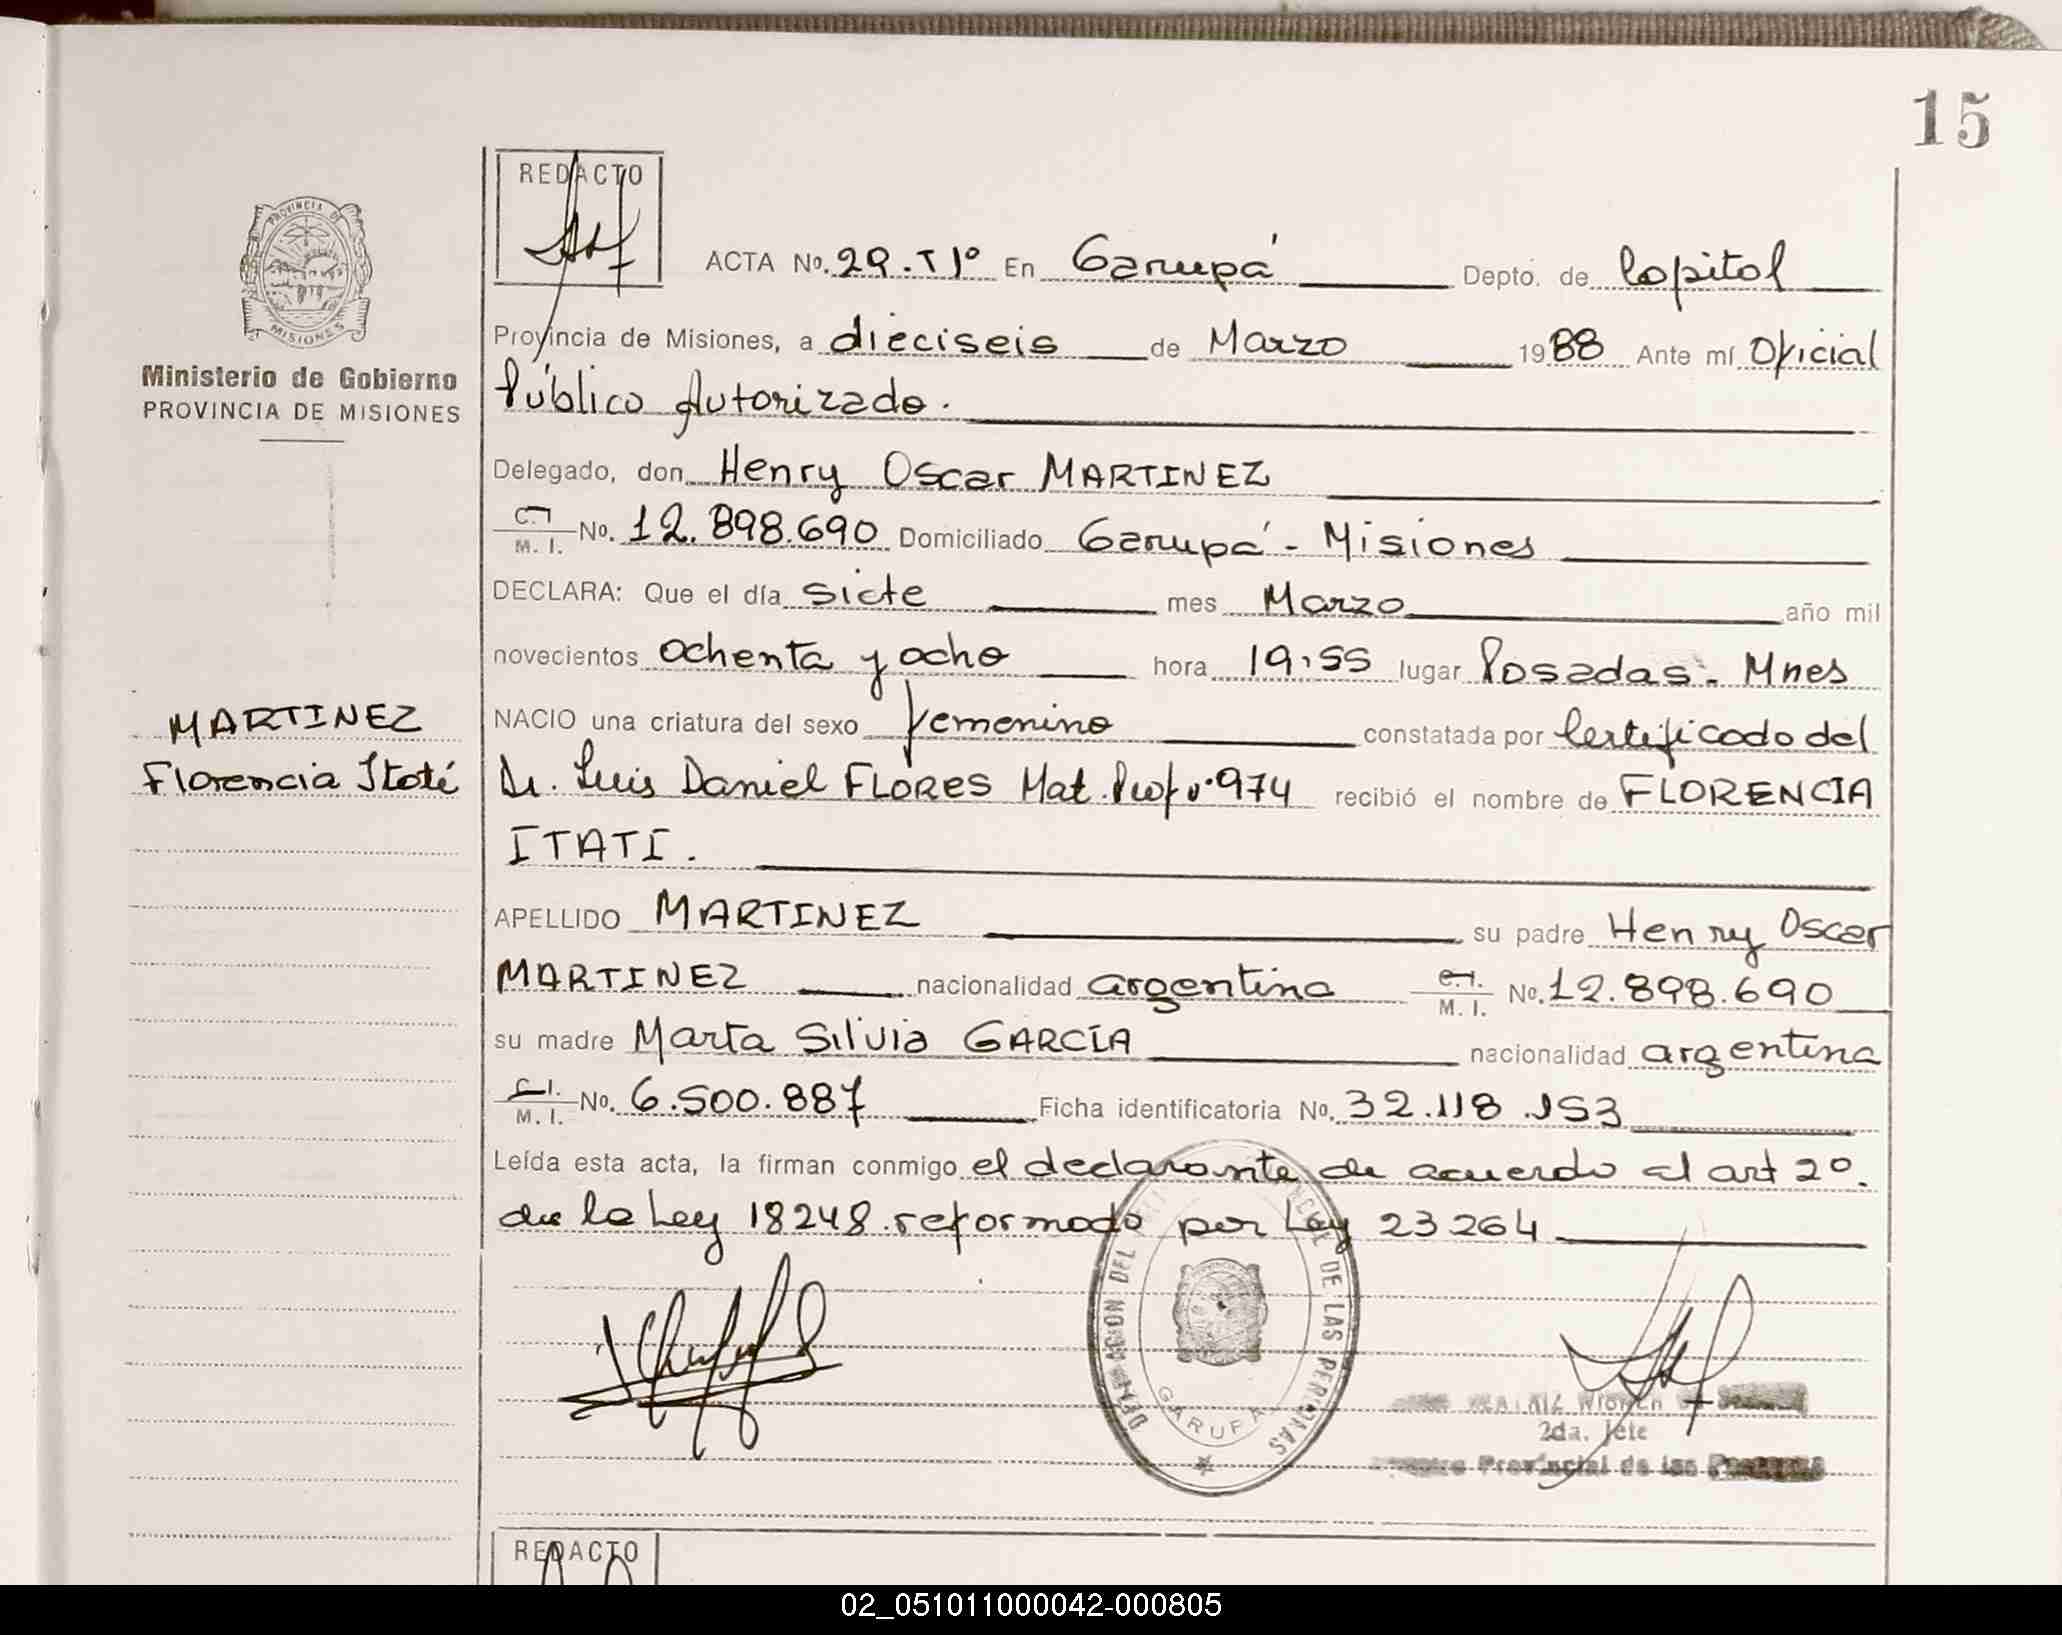 15
REDACTO
PROVINCIA DE
MISIONES
Ministerio de Gobierno
PROVINCIA DE MISIONES
ACTA No. 29. Tº 1º En Garupá Depto. de Capital
Provincia de Misiones, a dieciseis de Marzo 1988 Ante mí Oficial
Público Autorizado.
Delegado, don Henry Oscar MARTINEZ
C.I. M. I. No. 12.898.690 Domiciliado Garupá - Misiones
DECLARA: Que el día siete mes Marzo año mil
novecientos ochenta y ocho hora 19,55 lugar Posadas - Mnes
MARTINEZ
Florencia Itatí
NACIO una criatura del sexo femenino constatada por Certificado del
Dr. Luis Daniel FLORES Mat. Prof. 974 recibió el nombre de FLORENCIA
ITATI.
APELLIDO MARTINEZ su padre Henry Oscar
MARTINEZ nacionalidad argentina C.I. M. I. No. 12.898.690
su madre Marta Silvia GARCÍA nacionalidad argentina
C.I. M. I. No. 6.500.887 Ficha identificatoria No. 32.118.153
Leída esta acta, la firman conmigo el declarante de acuerdo al art 2º.
de la Ley 18248 reformado por Ley 23264
DELEGACION DEL DE LAS PERSONAS
GARUPA
2da. Jefe
Provincial de las Personas
REDACTO
02_051011000042-000805